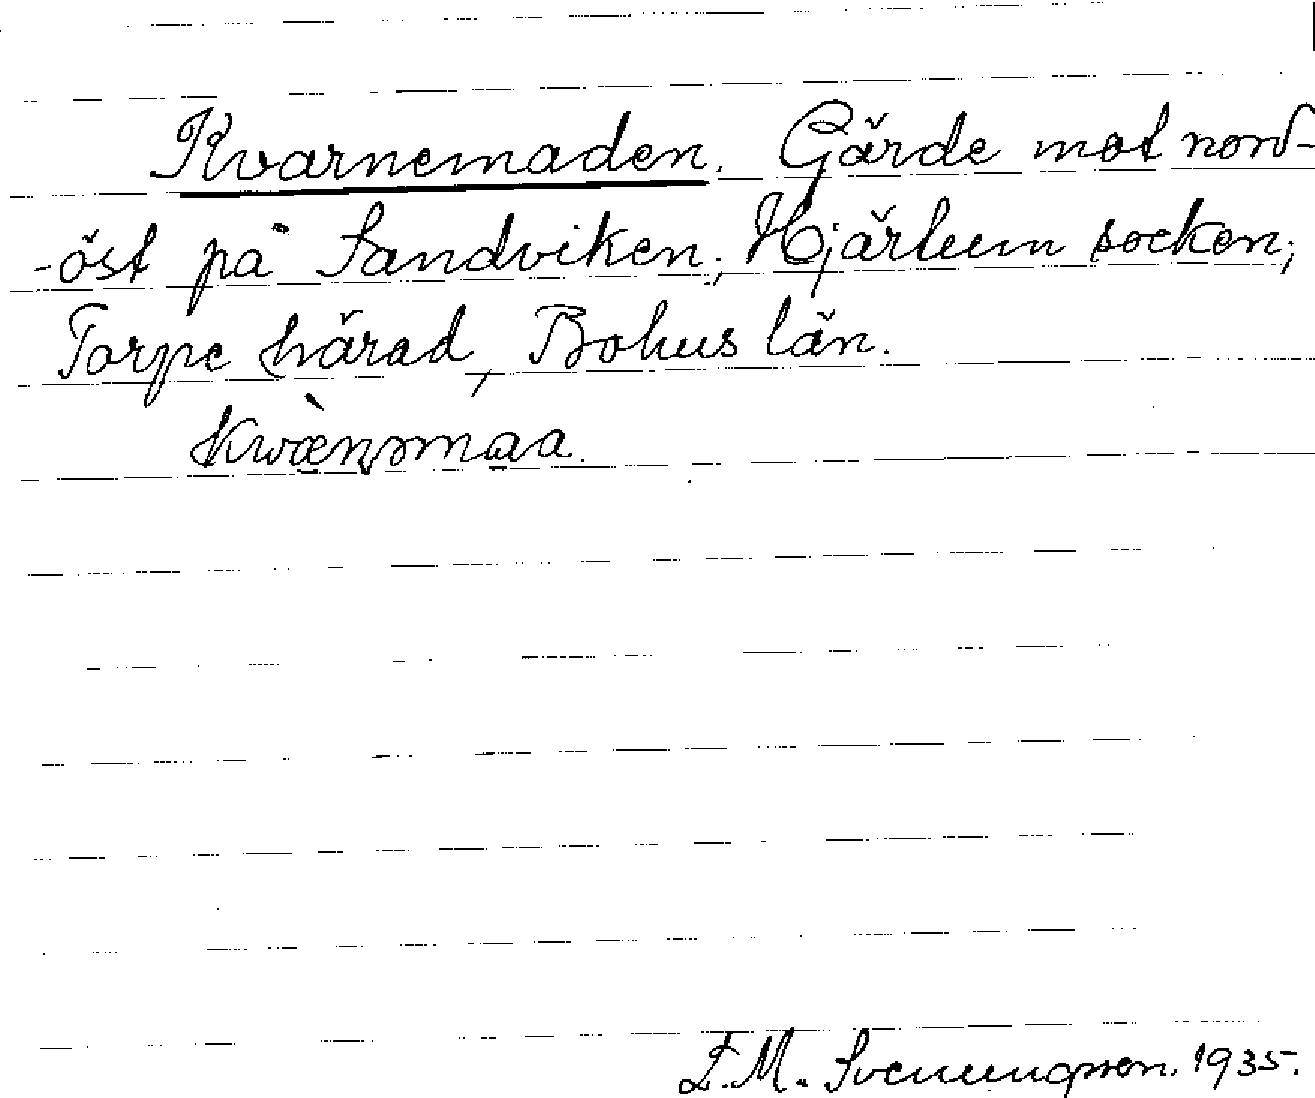 Kvarnemaden. Gärde mot nord-
-öst på Sandviken, Hjärtum socken,
Torpe härad, Bohus län.
Kwæ̀nəmaa.
E.M. Svenungsson. 1935.